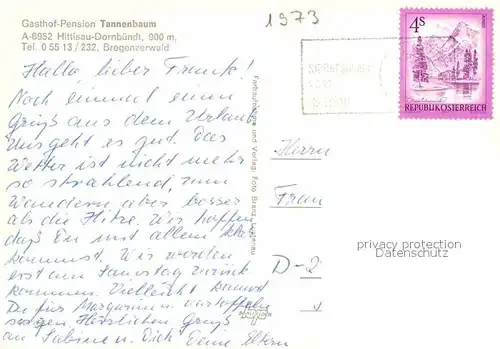 Gasthof-Pension Tannenbaum
A-6952 Hittisau-Dornbündt, 900 m,
Tel. 0 55 13 / 232, Bregenzerwald
1973
4S
REPUBLIK ÖSTERREICH
Hallo lieber Frank!
Noch einmal einen
Gruß aus dem Urlaub.
Uns geht es gut. Das
Wetter ist nicht mehr
so strahlend, zum
Wandern aber besser
als die Hitze. Wir hoffen
daß Du mit allem klar
kommst. Wir werden
erst am Samstag zurück
kommen. Vielleicht kannst
Du für Margarina Kartoffeln
sorgen. Herzlichen Gruß
an Sabine u. Dich Deine Eltern
Farbaufnahme und Verlag: Foto Branz,
Herrn
Fran
D-2
privacy protection
Datenschutz